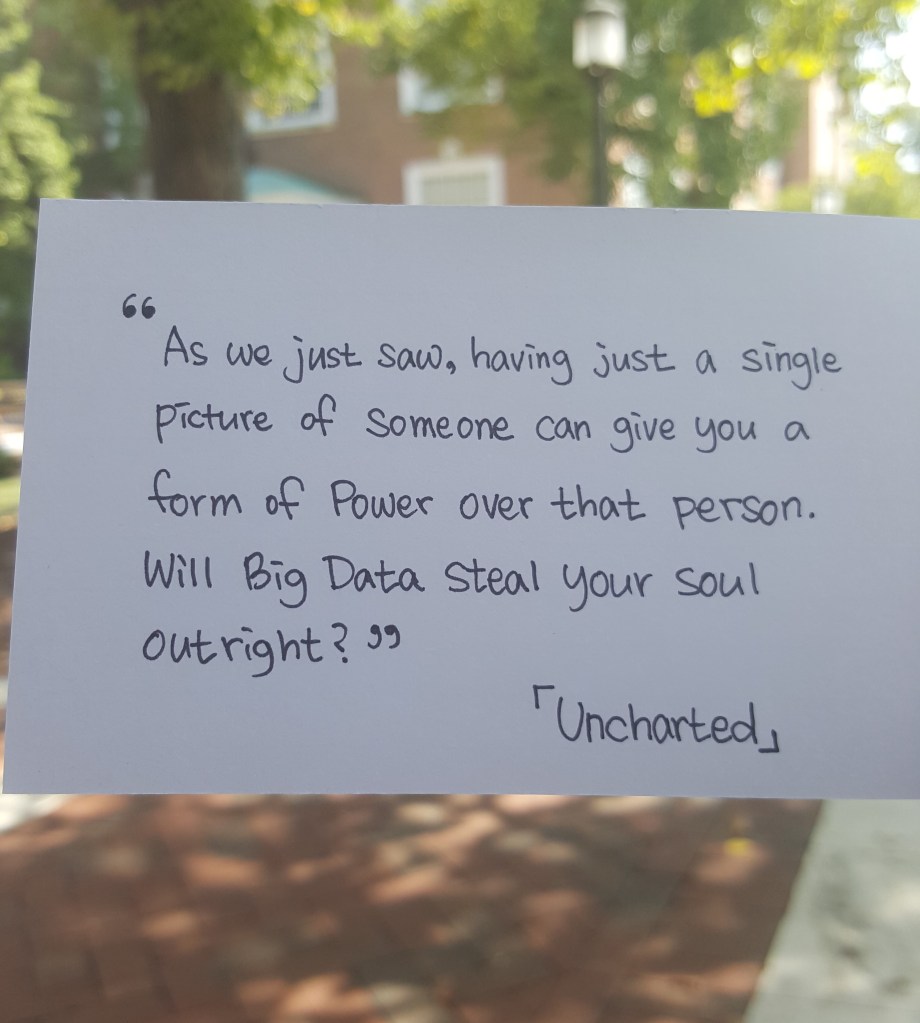 “
As we just saw, having just a single
picture of someone can give you a
form of Power over that person.
Will Big Data steal your soul
outright? ”
「Uncharted」